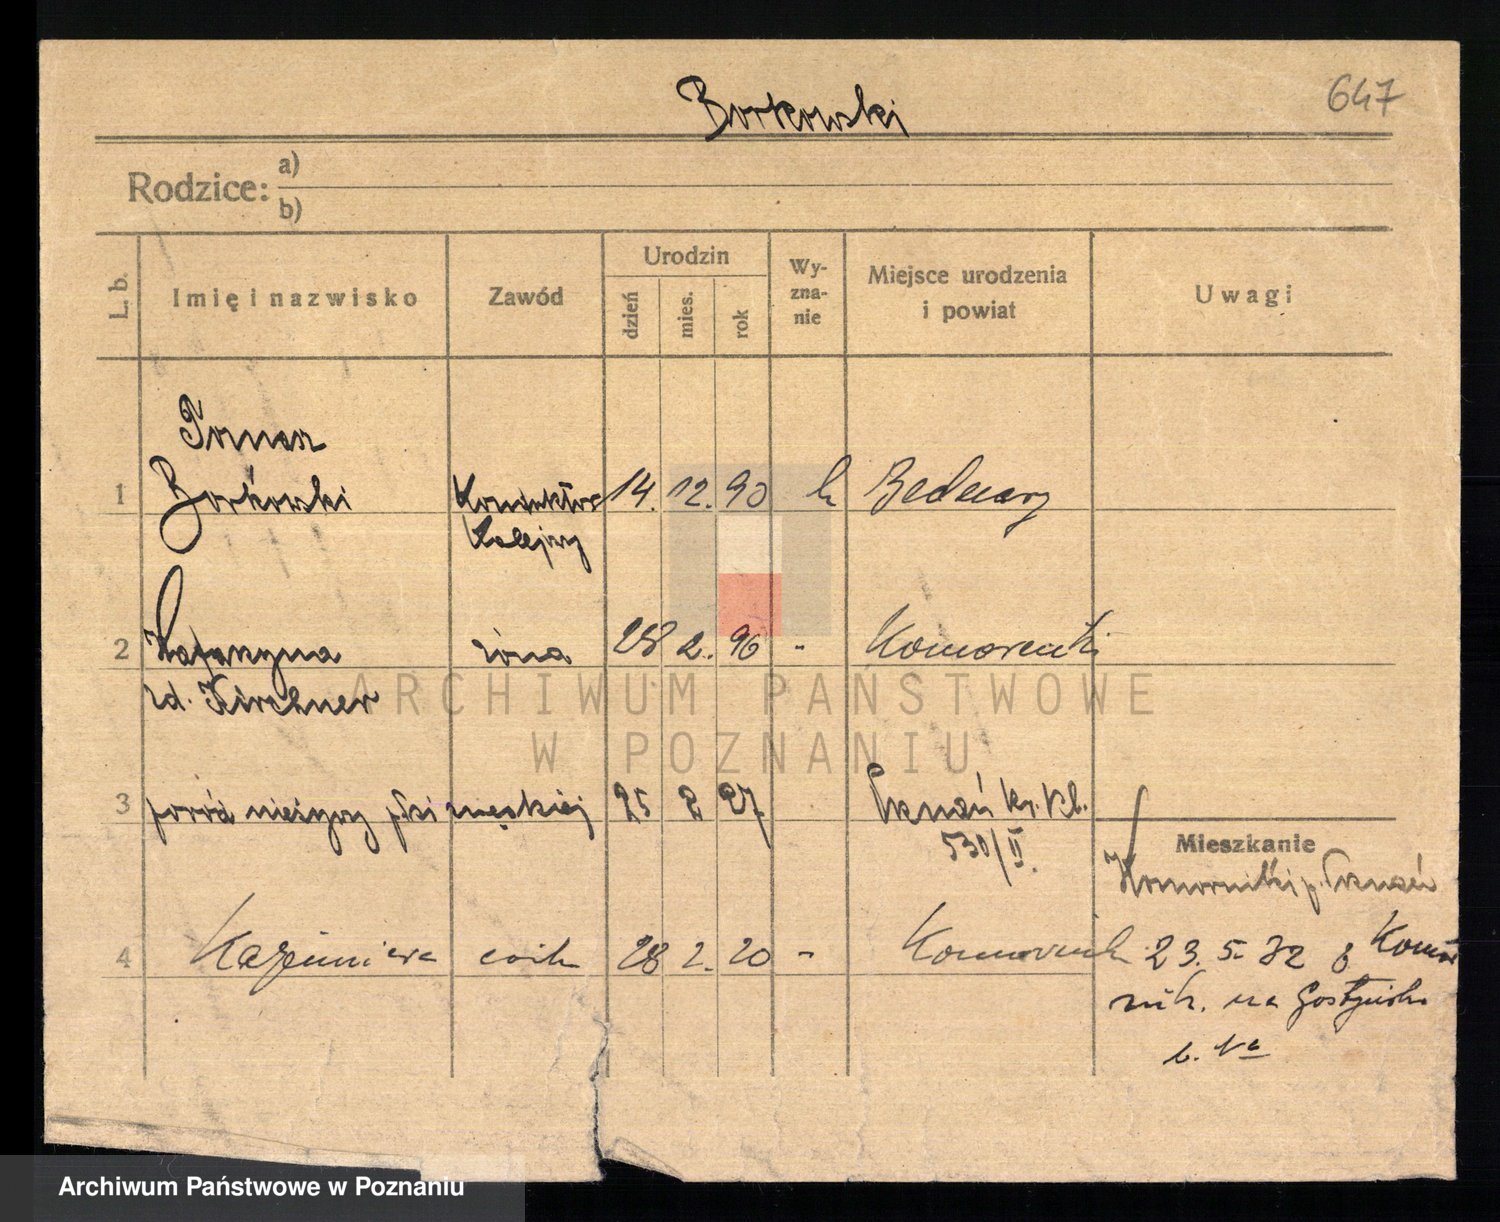 Borkowski
647
Rodzice: a)
b)
L. b.
Imię i nazwisko
Zawód
Urodzin
dzień
mies.
rok
Wy-
zna-
nie
Miejsce urodzenia
i powiat
Uwagi
Tomasz
1 Borkowski Konduktor 14. 12. 90 k Bednary
Kolejowy
2 Katarzyna żona 28 2. 96 - Komorniki
zd. Kirchner
ARCHIWUM PAŃSTWOWE
W POZNANIU
3 poród nieżywy płci męskiej 25 2 27 Poznań
530/II.
Mieszkanie
Komorniki p. Poznań
4 Kazimiera córk 28 2. 20 - Komornik
23. 5. 32 z Komor
nik. na Gostyńska
Archiwum Państwowe w Poznaniu